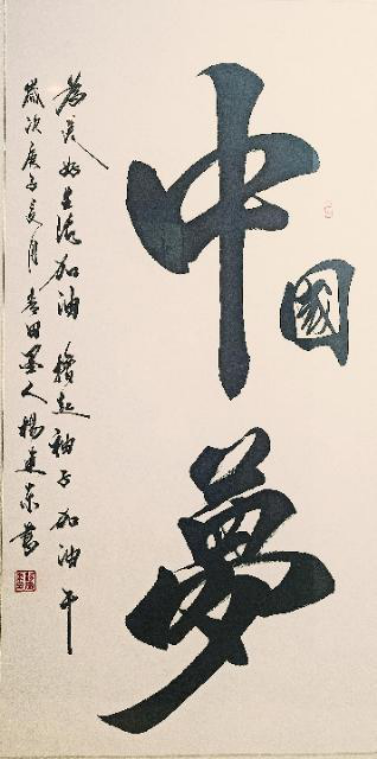 中國夢
為美好生活加油 擼起袖子加油干
歲次庚子亥月 青田墨人楊建東書